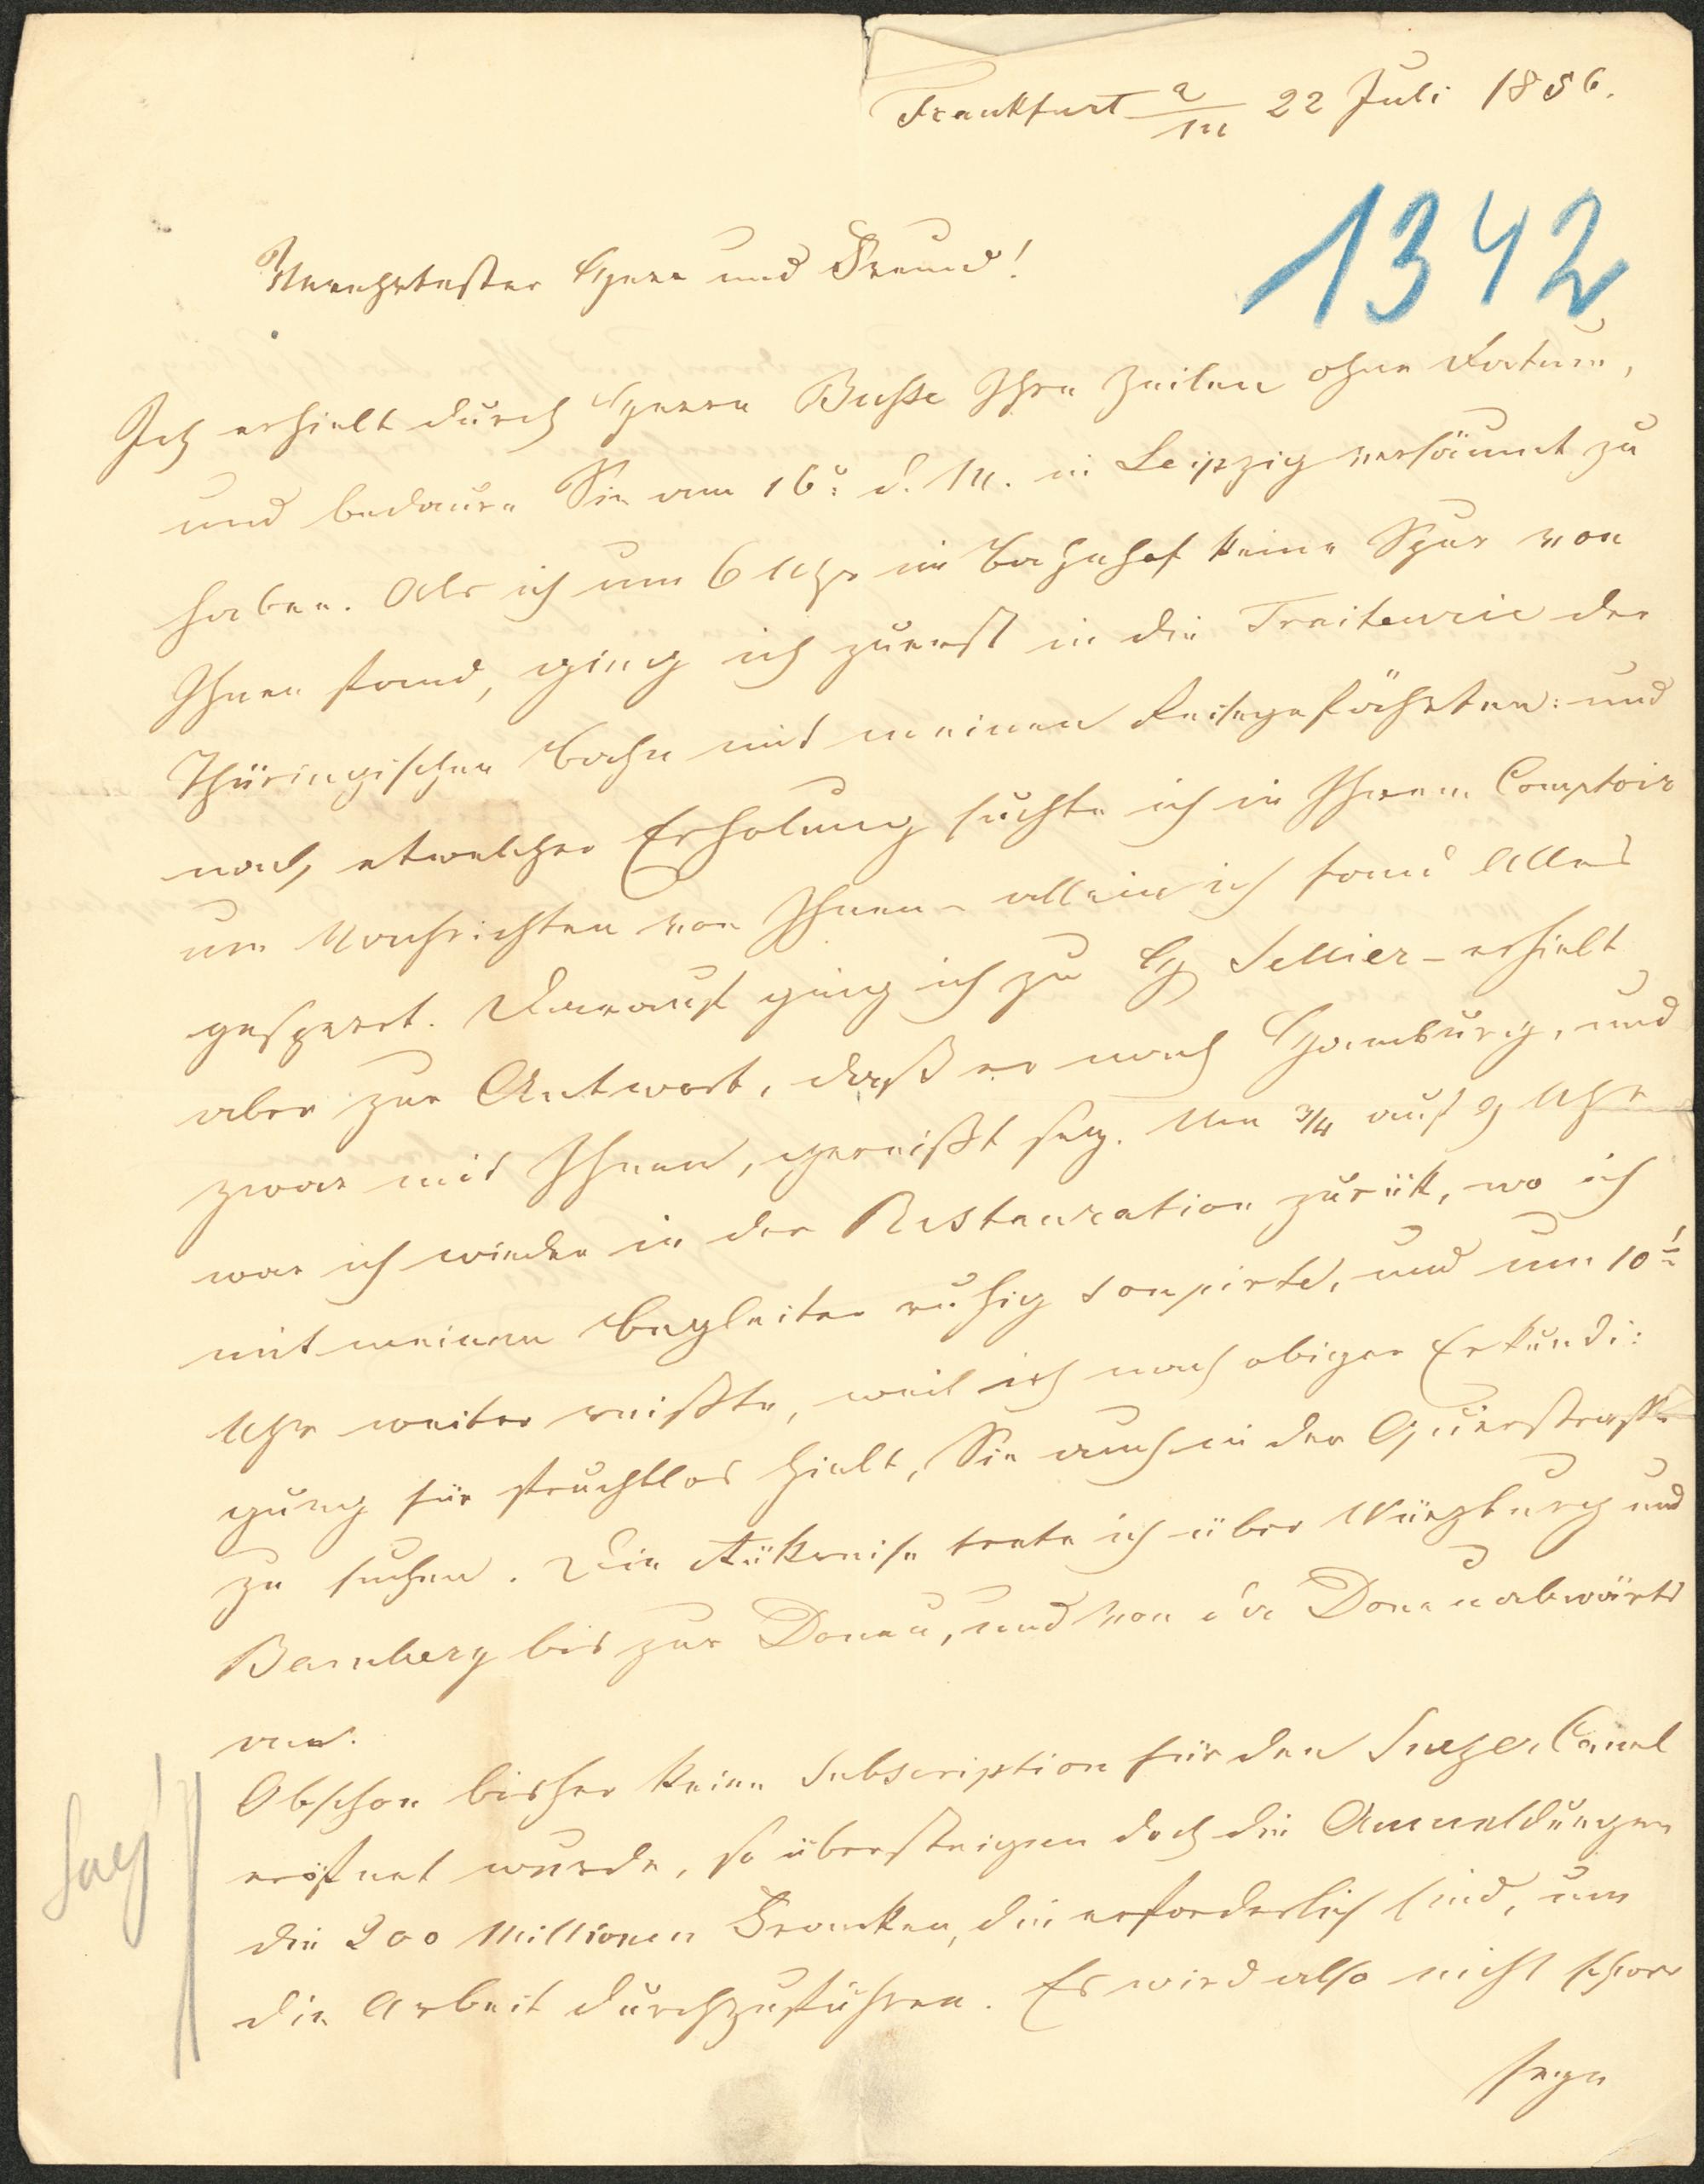 Frankfurt a/M 22 Juli 1856.
1342
Verehrtester Herr und Freund!
Ich erhielt durch Herrn Busse Ihre Zeilen ohne Datum,
und bedaure Sie am 16: d. M. in Leipzig versäumt zu
haben. Als ich um 6 Uhr im Bahnhof keine Spur von
Ihnen fand, ging ich zuerst in die Traiteurie der
Thüringischen Bahn mit meinen Reisegefährten: und
nach etwelcher Erholung suchte ich in Ihrem Comptoir
um Nachrichten von Ihnen – allein ich fand Alles
gesperrt. Darauf ging ich zu H Sellier – erhielt
aber zur Antwort, daß er nach Hamburg, und
zwar mit Ihnen, gereißt sey. Um 3/4 auf 9 Uhr
war ich wieder in der Restauration zurük, wo ich
mit meinem Begleiter ruhig soupirte, und um 10½
Uhr weiter reißte, weil ich nach obiger Erkundi:
gung für fruchtlos hielt, Sie auch in der Querstrasse
zu suchen. Die Rükreise trete ich über Würzburg und
Bamberg bis zur Donau, und von da Donauabwärts
an.
Obschon bisher keine Subscription für den Suezer Canal
eröfnet wurde, so übersteigen doch die Anmeldungen
die 200 Millionen Francken, die erforderlich sind, um
die Arbeit durchzuführen. Es wird also nicht schwer
seyn